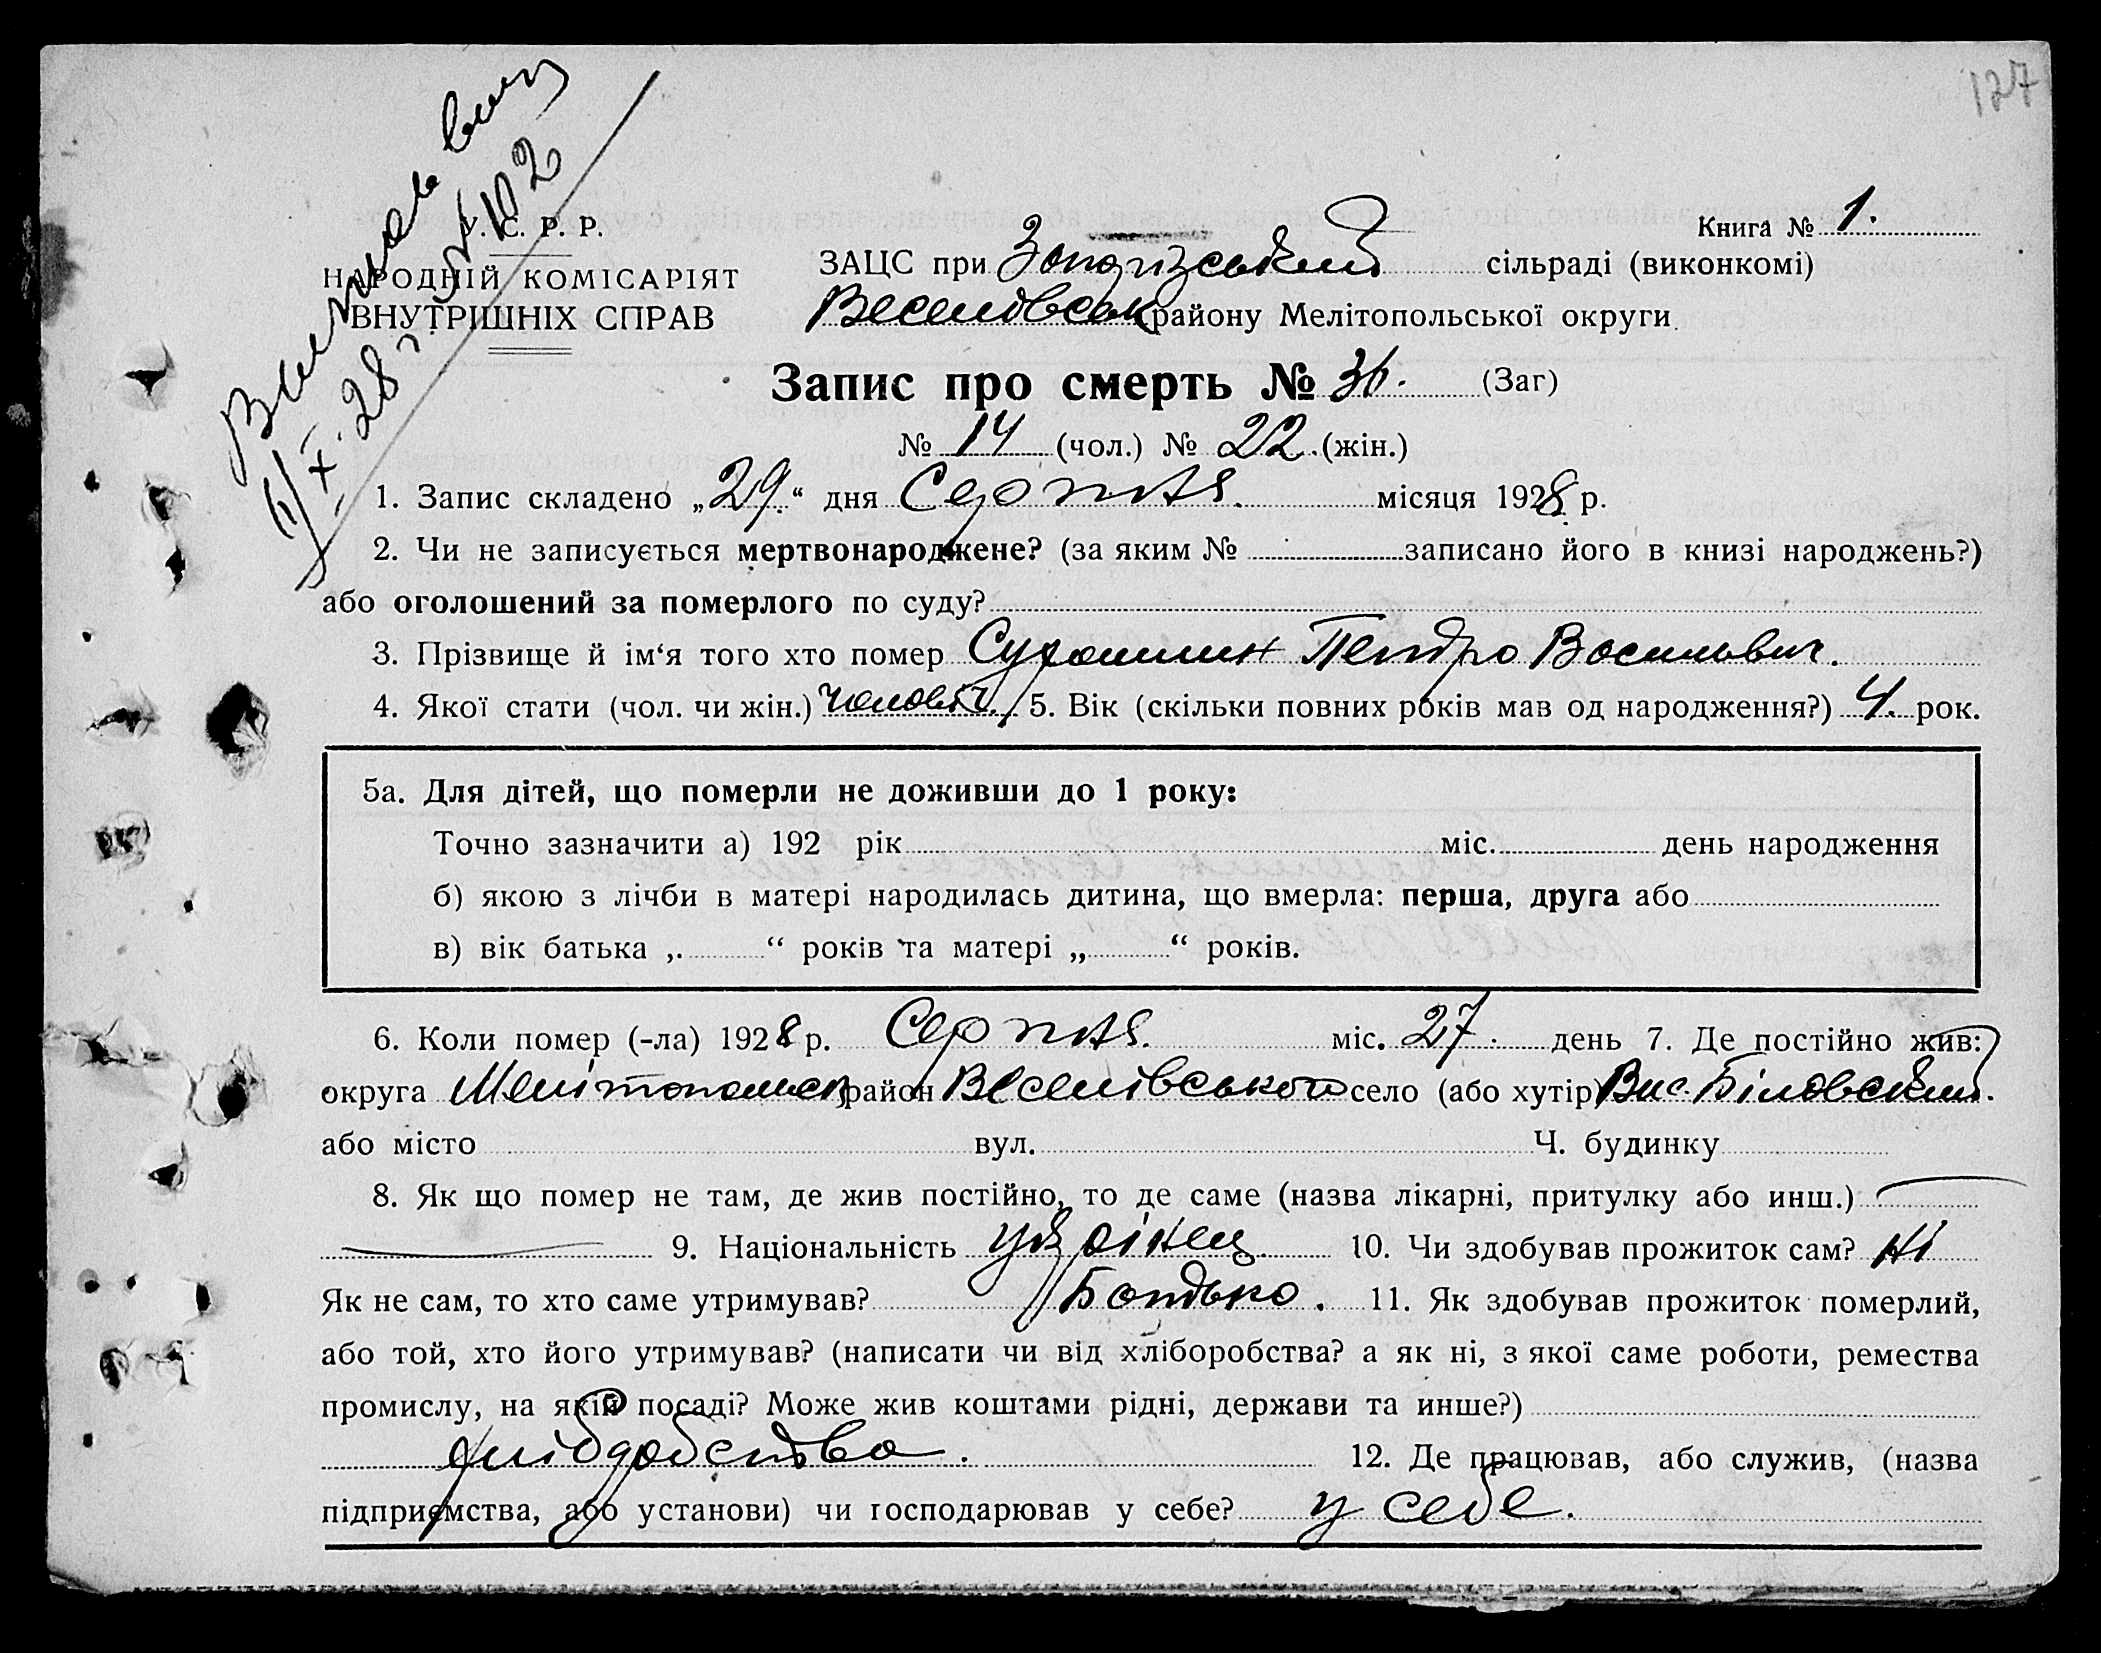 127
№ 102
У. С. Р. Р.
Книга № 1.
НАРОДНІЙ КОМІСАРІЯТ
ЗАЦС при сільраді (виконкомі)
ВНУТРІШНІХ СПРАВ
Веселовськ району Мелітопольської округи
Х. 28 г.
Запис про смерть № 36. (Заг)
№ 14 (чол.) № 22. (жін.)
1. Запис складено „29.“ дня Серпня. місяця 1928 р.
2. Чи не записується мертвонароджене? (за яким № записано його в книзі народжень?)
або оголошений за померлого по суду?
3. Прізвище й ім‘я того хто помер Петро Васильвич.
4. Якої стати (чол. чи жін.) чоловіч. 5. Вік (скільки повних років мав од народження?) 4. рок.
5а. Для дітей, що померли не доживши до 1 року:
Точно зазначити а) 192 рік міс. день народження
б) якою з лічби в матері народилась дитина, що вмерла: перша, друга або
в) вік батька „ “ років та матері „ “ років.
6. Коли помер (-ла) 1928 р. Серпня. міс. 27. день 7. Де постійно жив:
округа Мелітопольськ район Веселівського село (або хутір) Вис. Біловський.
або місто вул. Ч. будинку
8. Як що помер не там, де жив постійно, то де саме (назва лікарні, притулку або инш.)
9. Національність украінец. 10. Чи здобував прожиток сам? Ні
Як не сам, то хто саме утримував? Батько. 11. Як здобував прожиток померлий,
або той, хто його утримував? (написати чи від хліборобства? а як ні, з якої саме роботи, ремества
промислу, на якій посаді? Може жив коштами рідні, держави та инше?)
хлібробство. 12. Де працював, або служив, (назва
підприємства, або установи) чи господарював у себе? у себе.